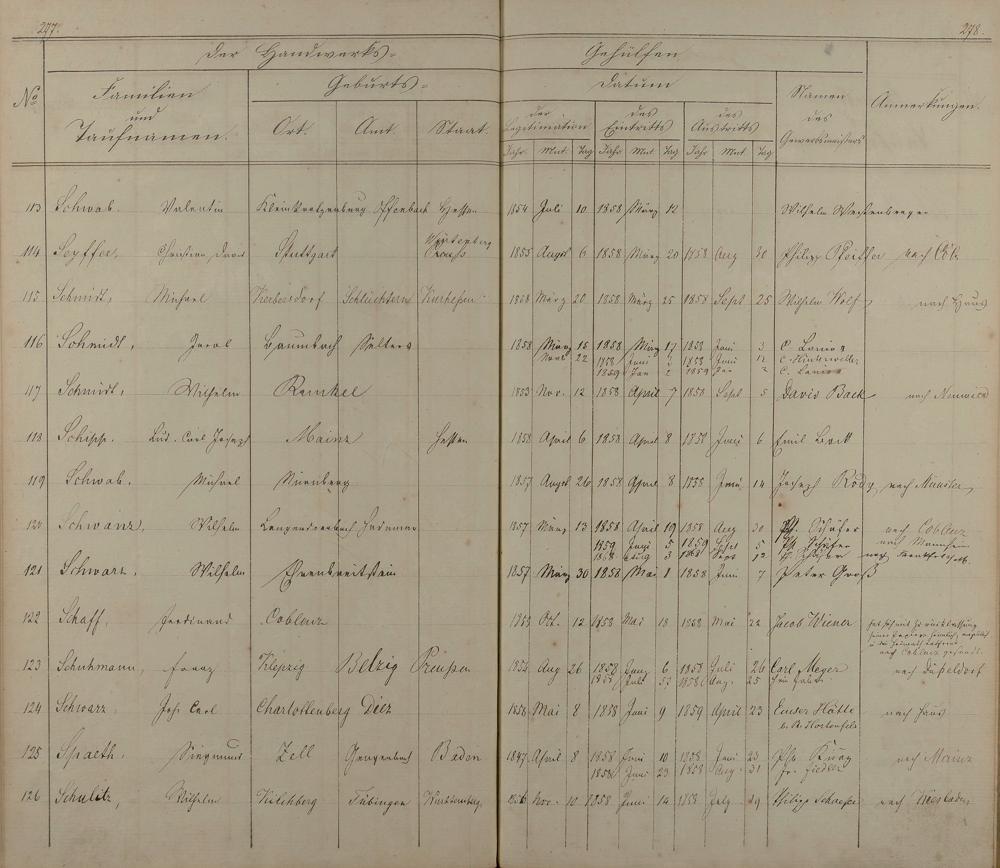 277.
278.
Der Handwerks- Gehülfen
No
Familien und Taufnamen.
Geburts-
Ort. Amt. Staat.
Datum
der Legitimation
des Eintritts
des Austritts
Jahr Mnt. Tag Jahr Mnt. Tag Jahr Mnt Tag
Namen des Gewerbsmeisters
Anmerkungen.
113 Schwab. Valentin Offenbach Hessen 1854 Juli 10 1858 März 12 Wilhelm
114 Seyffer, Christian David Stuttgart 1855 August 6 1858 März 20 1858 Aug 30 Philipp nach
115 Schmitt, Michael Schlüchtern Kurhessen 1858 März 20 1858 März 25 1858 Sept 25 Wilhelm Wolf nach Haus
116 Schmidt, Jacob Baumbach Selters 1858 März 15 1858 März 17 1858 Juni 3 C.
22 1858 Juni 1858 Juni 12 C.
1859 Jan 1859 C.
117 Schmidt, Wilhelm 1853 Nov. 12 1858 April 7 1858 Sept 5 David Back nach Neuwied
118 Schipp. Lud. Carl Joseph Mainz Hessen 1858 April 6 1858 April 8 1858 Juni 6 Emil
119 Schwab. Michael Nürnberg 1857 August 26 1858 April 8 1858 Juni 14 Joseph Rody nach Münster
120 Schwanz, Wilhelm Hadamar 1857 März 13 1858 April 19 1858 Aug 30 Ph. Schäfer nach Coblenz
1859 Juni 5 1859 Sept 5 Ph. Schäfer nach Mannheim
3 Sept 12 Schäfer nach
121 Schwarz, Wilhelm Ehrenbreitstein 1857 März 30 1858 Mai 1 1858 Juni 7 Peter Groß
122 Schaff, Ferdinand Coblenz Oct. 12 1858 Mai 18 1858 Mai 22 Jacob Wiener
nach Coblenz gesandt.
123 Schuhmann, Franz Klepzig Belzig Preußen Aug 26 1858 Juny 6 1858 Juli 26 Carl Meyer nach Düsseldorf
1858 Juli 1858 Aug. 25
124 Schwarz Joh. Carl Charlottenberg Diez 1856 Mai 8 1858 Juni 9 1859 April 23 Emser Hütte nach Haus
125 Spaeth. Siegmund Zell Gengenbach Baden 1847 April 8 1858 Juni 10 1858 Juni 23 Ph. nach Mainz
1858 Juni 23 1858 Aug. 31 Fr.
126 Schulitz, Wilhelm Kilchberg Tübingen Würtemberg 1856 Nov. 10 1858 Juni 14 1858 July 29 Philipp Schaefer nach Wiesbaden